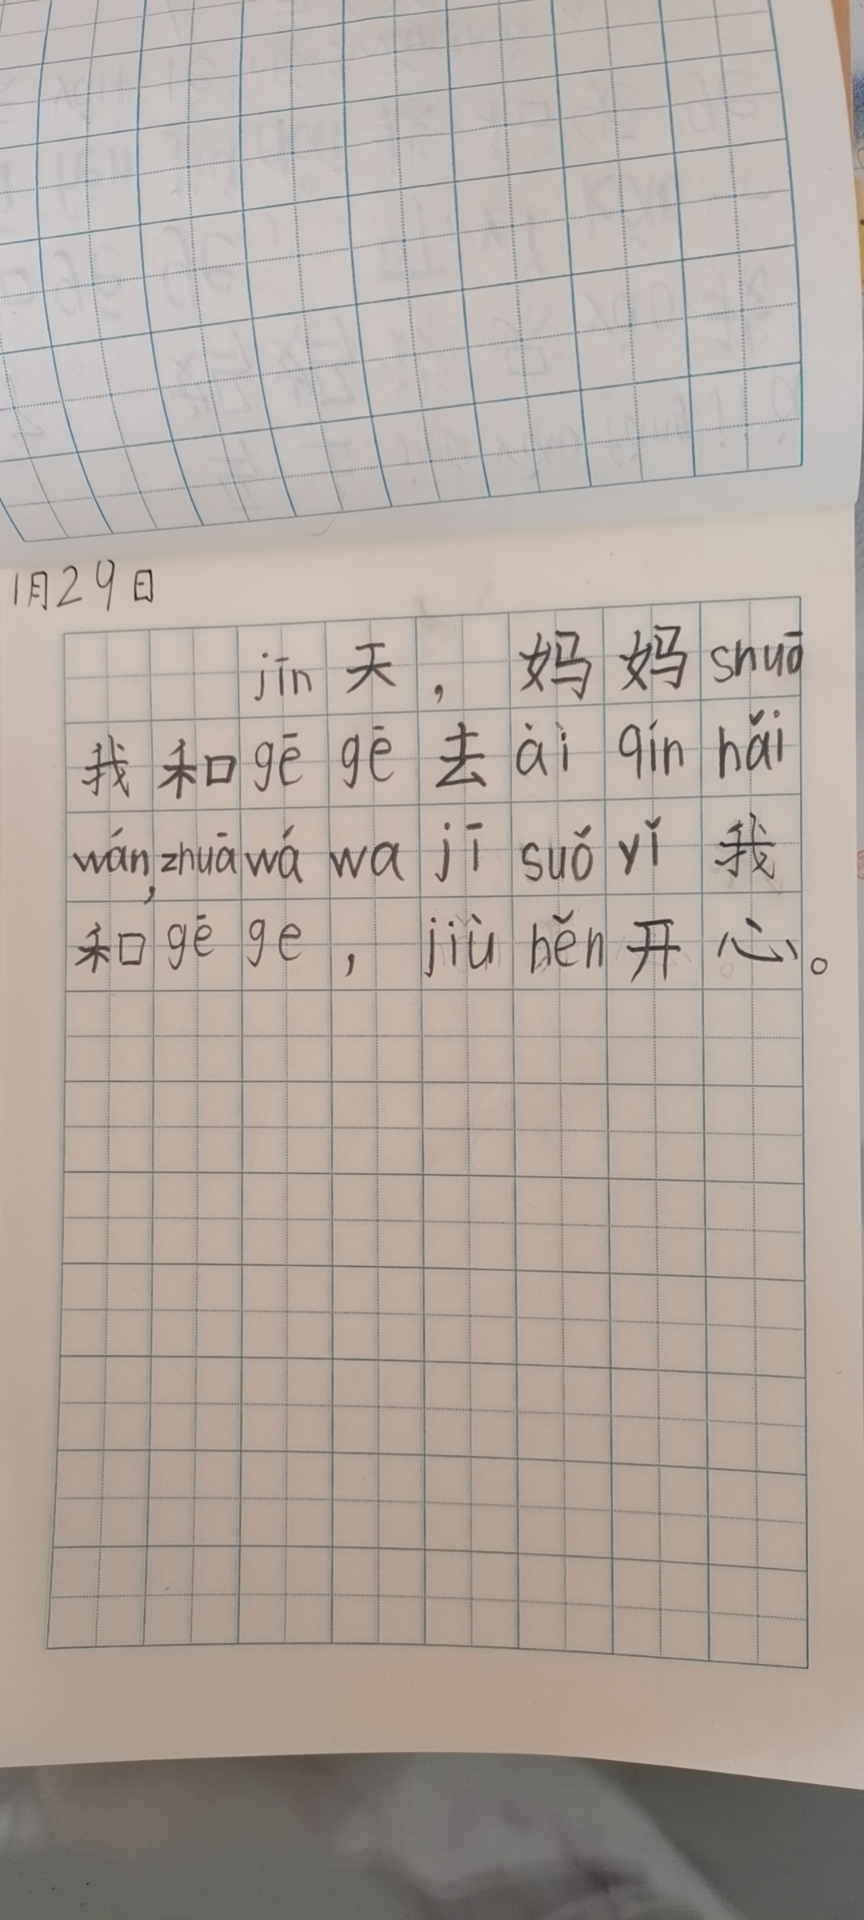 1月29日
jīn天，妈妈shuō
我和gē gē去ài qín hǎi
wán,zhuā wá wa jī suǒ yǐ 我
和gē ge，jiù hěn开心。